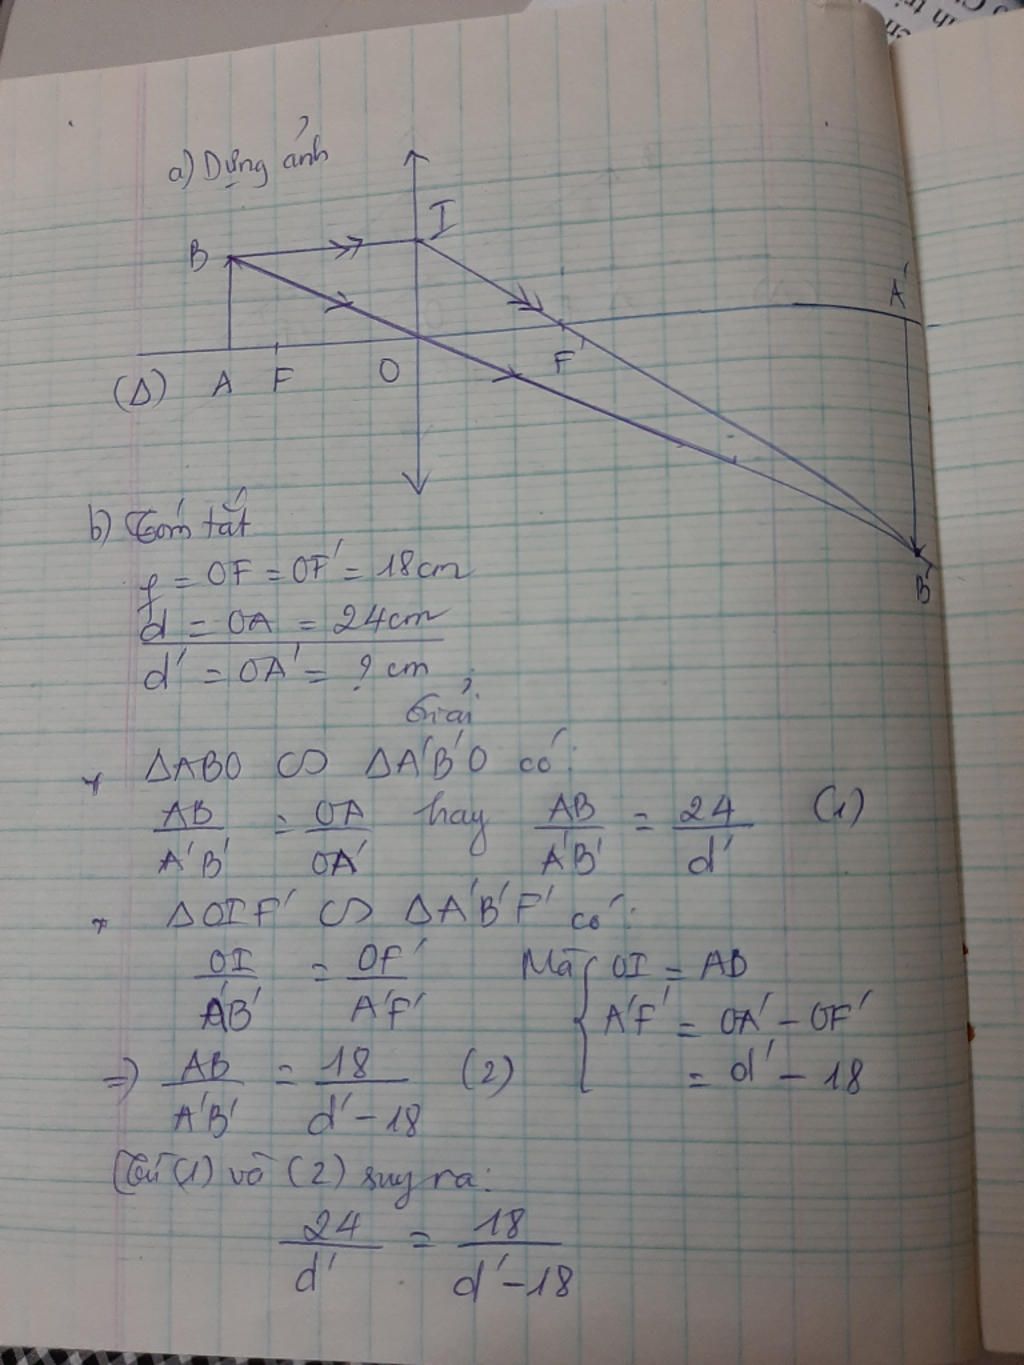 a) Dựng ảnh
I
B
A'
(Δ) A F O F'
B'
b) Tóm tắt
f = OF = OF' = 18cm
d = OA = 24cm
d' = OA' = ? cm ;
Giải
* ΔABO ∽ ΔA'B'O có:
AB/A'B' = OA/OA' hay AB/A'B' = 24/d' (1)
* ΔOIF' ∽ ΔA'B'F' có:
OI/A'B' = OF'/A'F' Mà { OI = AB
A'F' = OA' - OF'
= d' - 18
=> AB/A'B' = 18/d' - 18 (2)
Từ (1) và (2) suy ra:
24/d' = 18/d' - 18